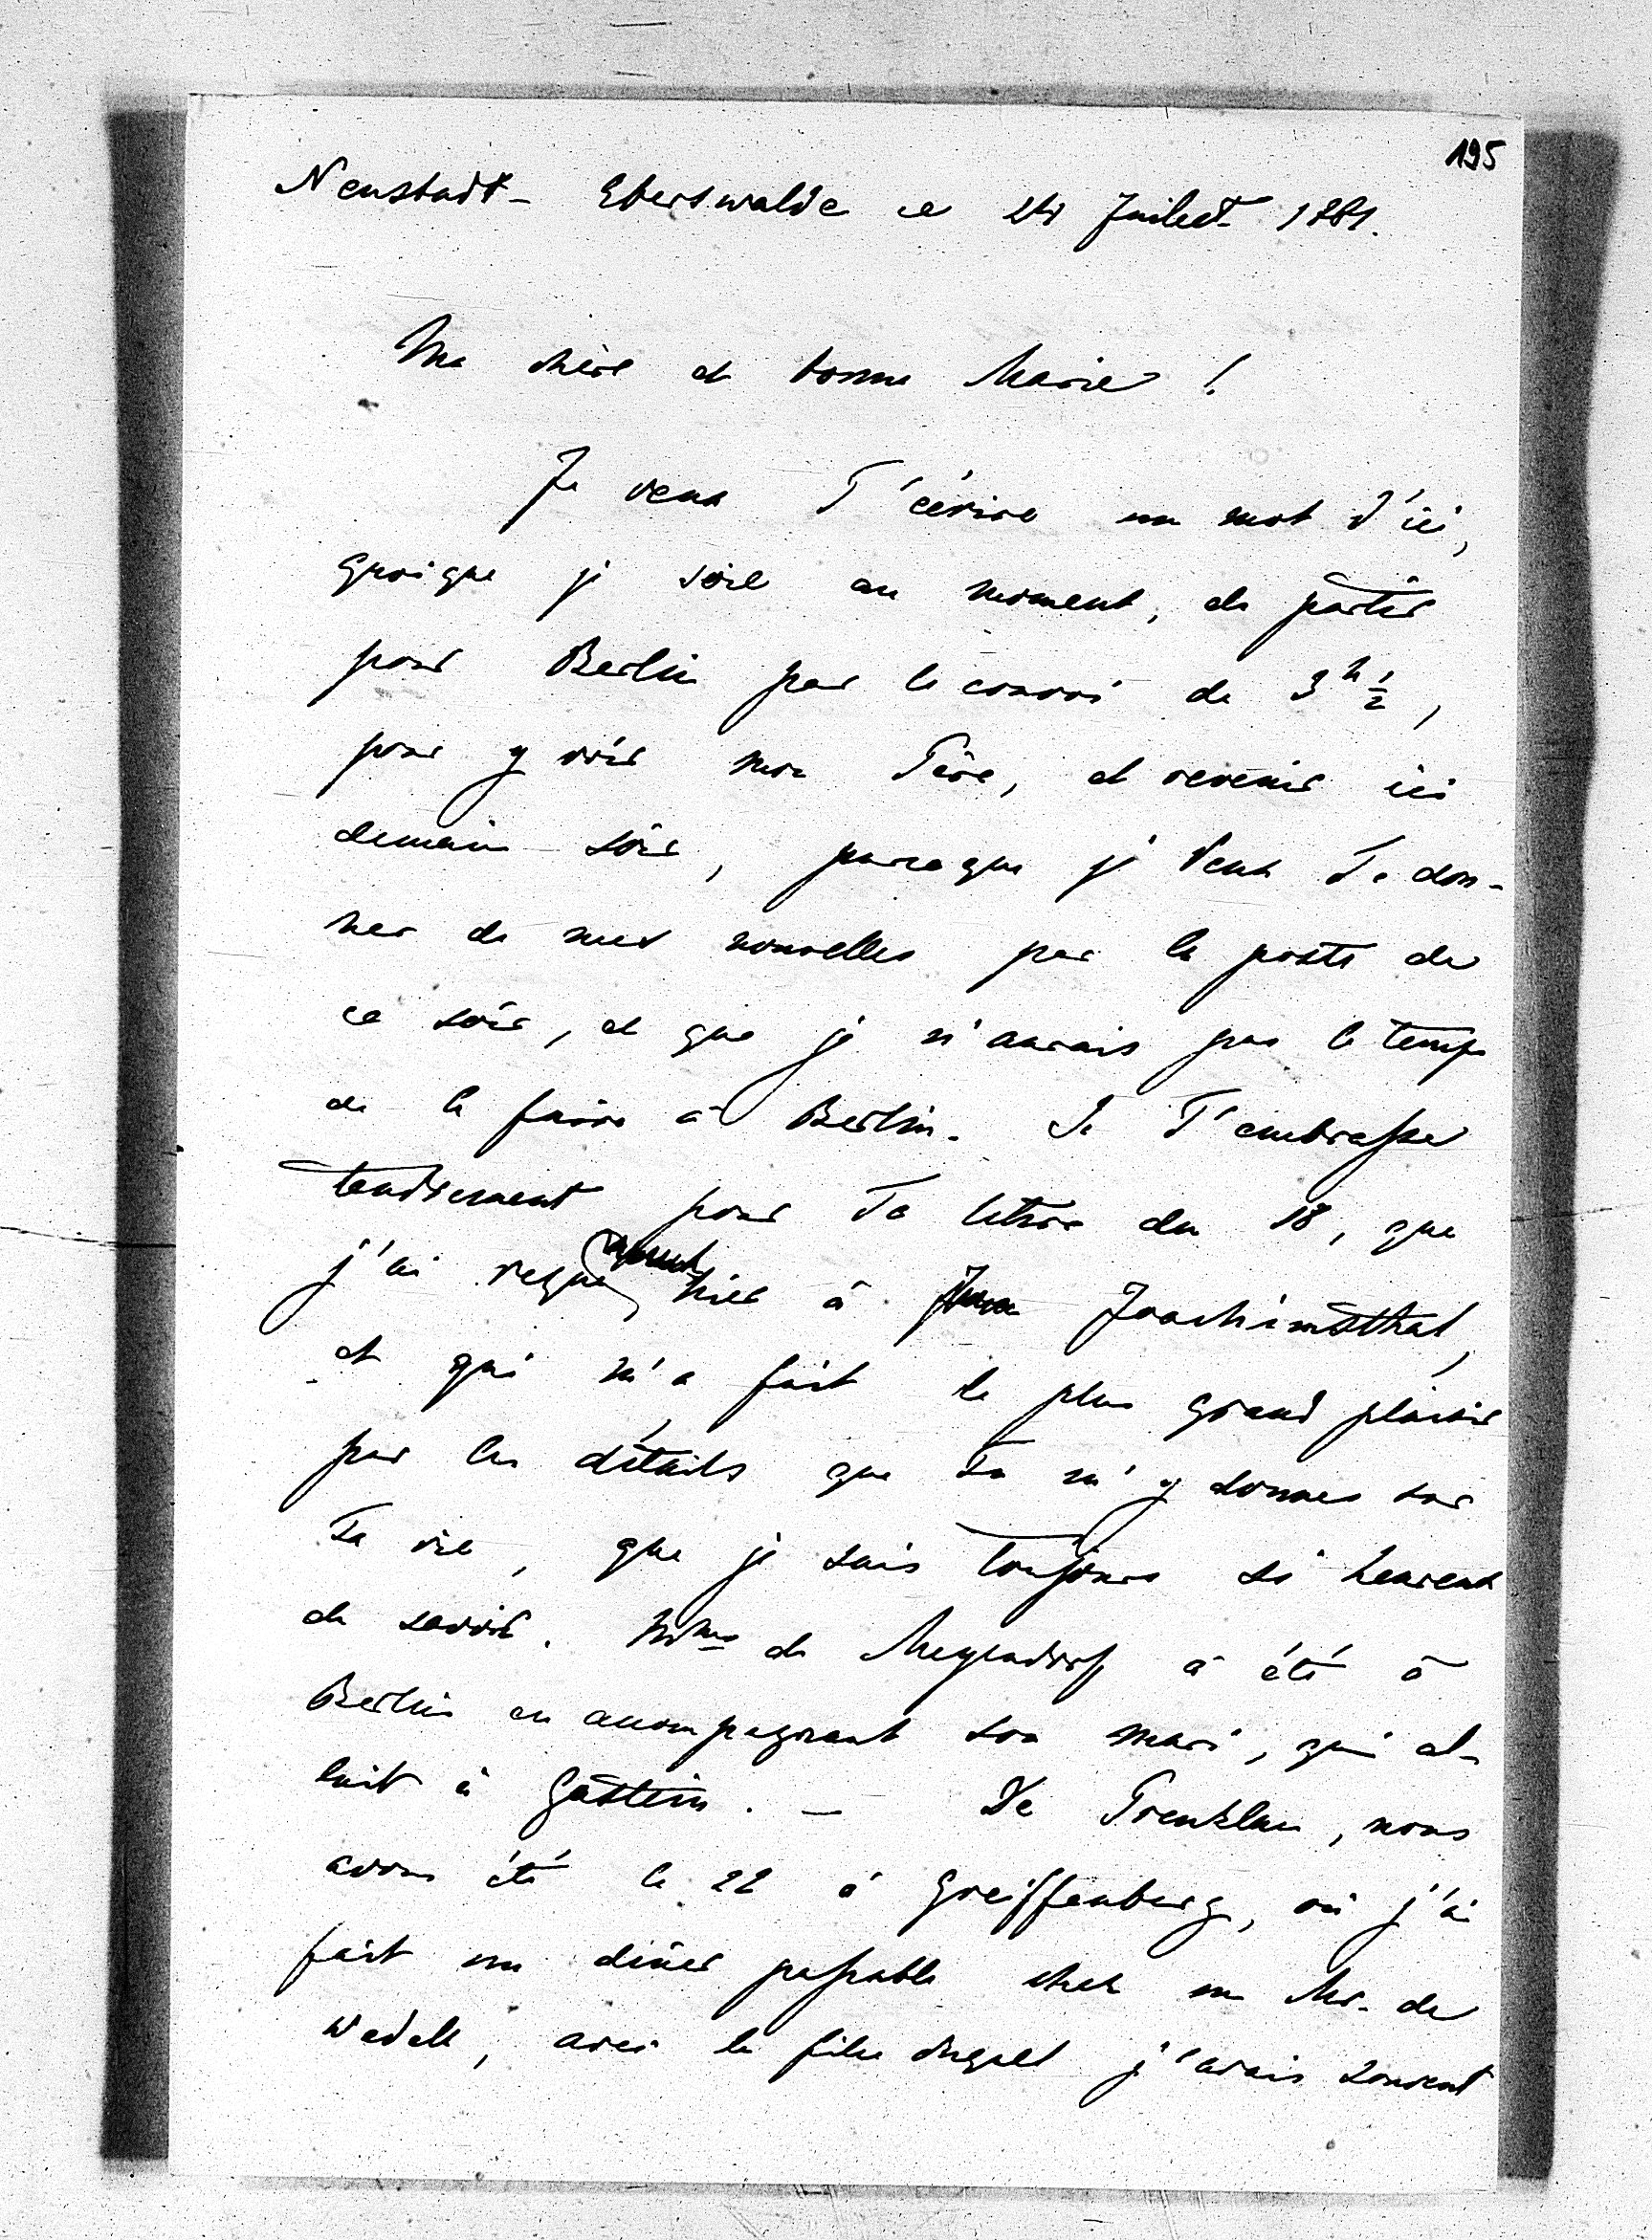 195
Neustadt-Eberswalde ce 24 Juilet 1881.
Ma chère et bonne Marie!
Je veux T'écrire un mot d'ici,
quoique je sois au moment, de partir
pour Berlin par le convoi de 3h ½,
pour y voir mon Père, et revenir ici
demain soir, parceque je veux Te don-
ner de mes nouvelles par la poste de
ce soir, et que je n'aurais pas le temps
de le faire à Berlin. Je T'embrasse
tendrement pour Ta lettre du 18, que
j'ai reçue, hier à Joachimsthal,
et qui m'a fait le plus grand plaisir
par les détails que Tu m'y donnes sur
Ta vie, que je suis toujours si heureux
de savoir. Mme de Meyendorff a été à
Berlin en accompagnant son mari, qui al-
lait à Gastein. — De Prenzlau, nous
avons été le 22 à Greiffenberg, où j'ai
fait un dîner passable chez un Mr. de
Wedell, avec le fils duquel j'avais souvent